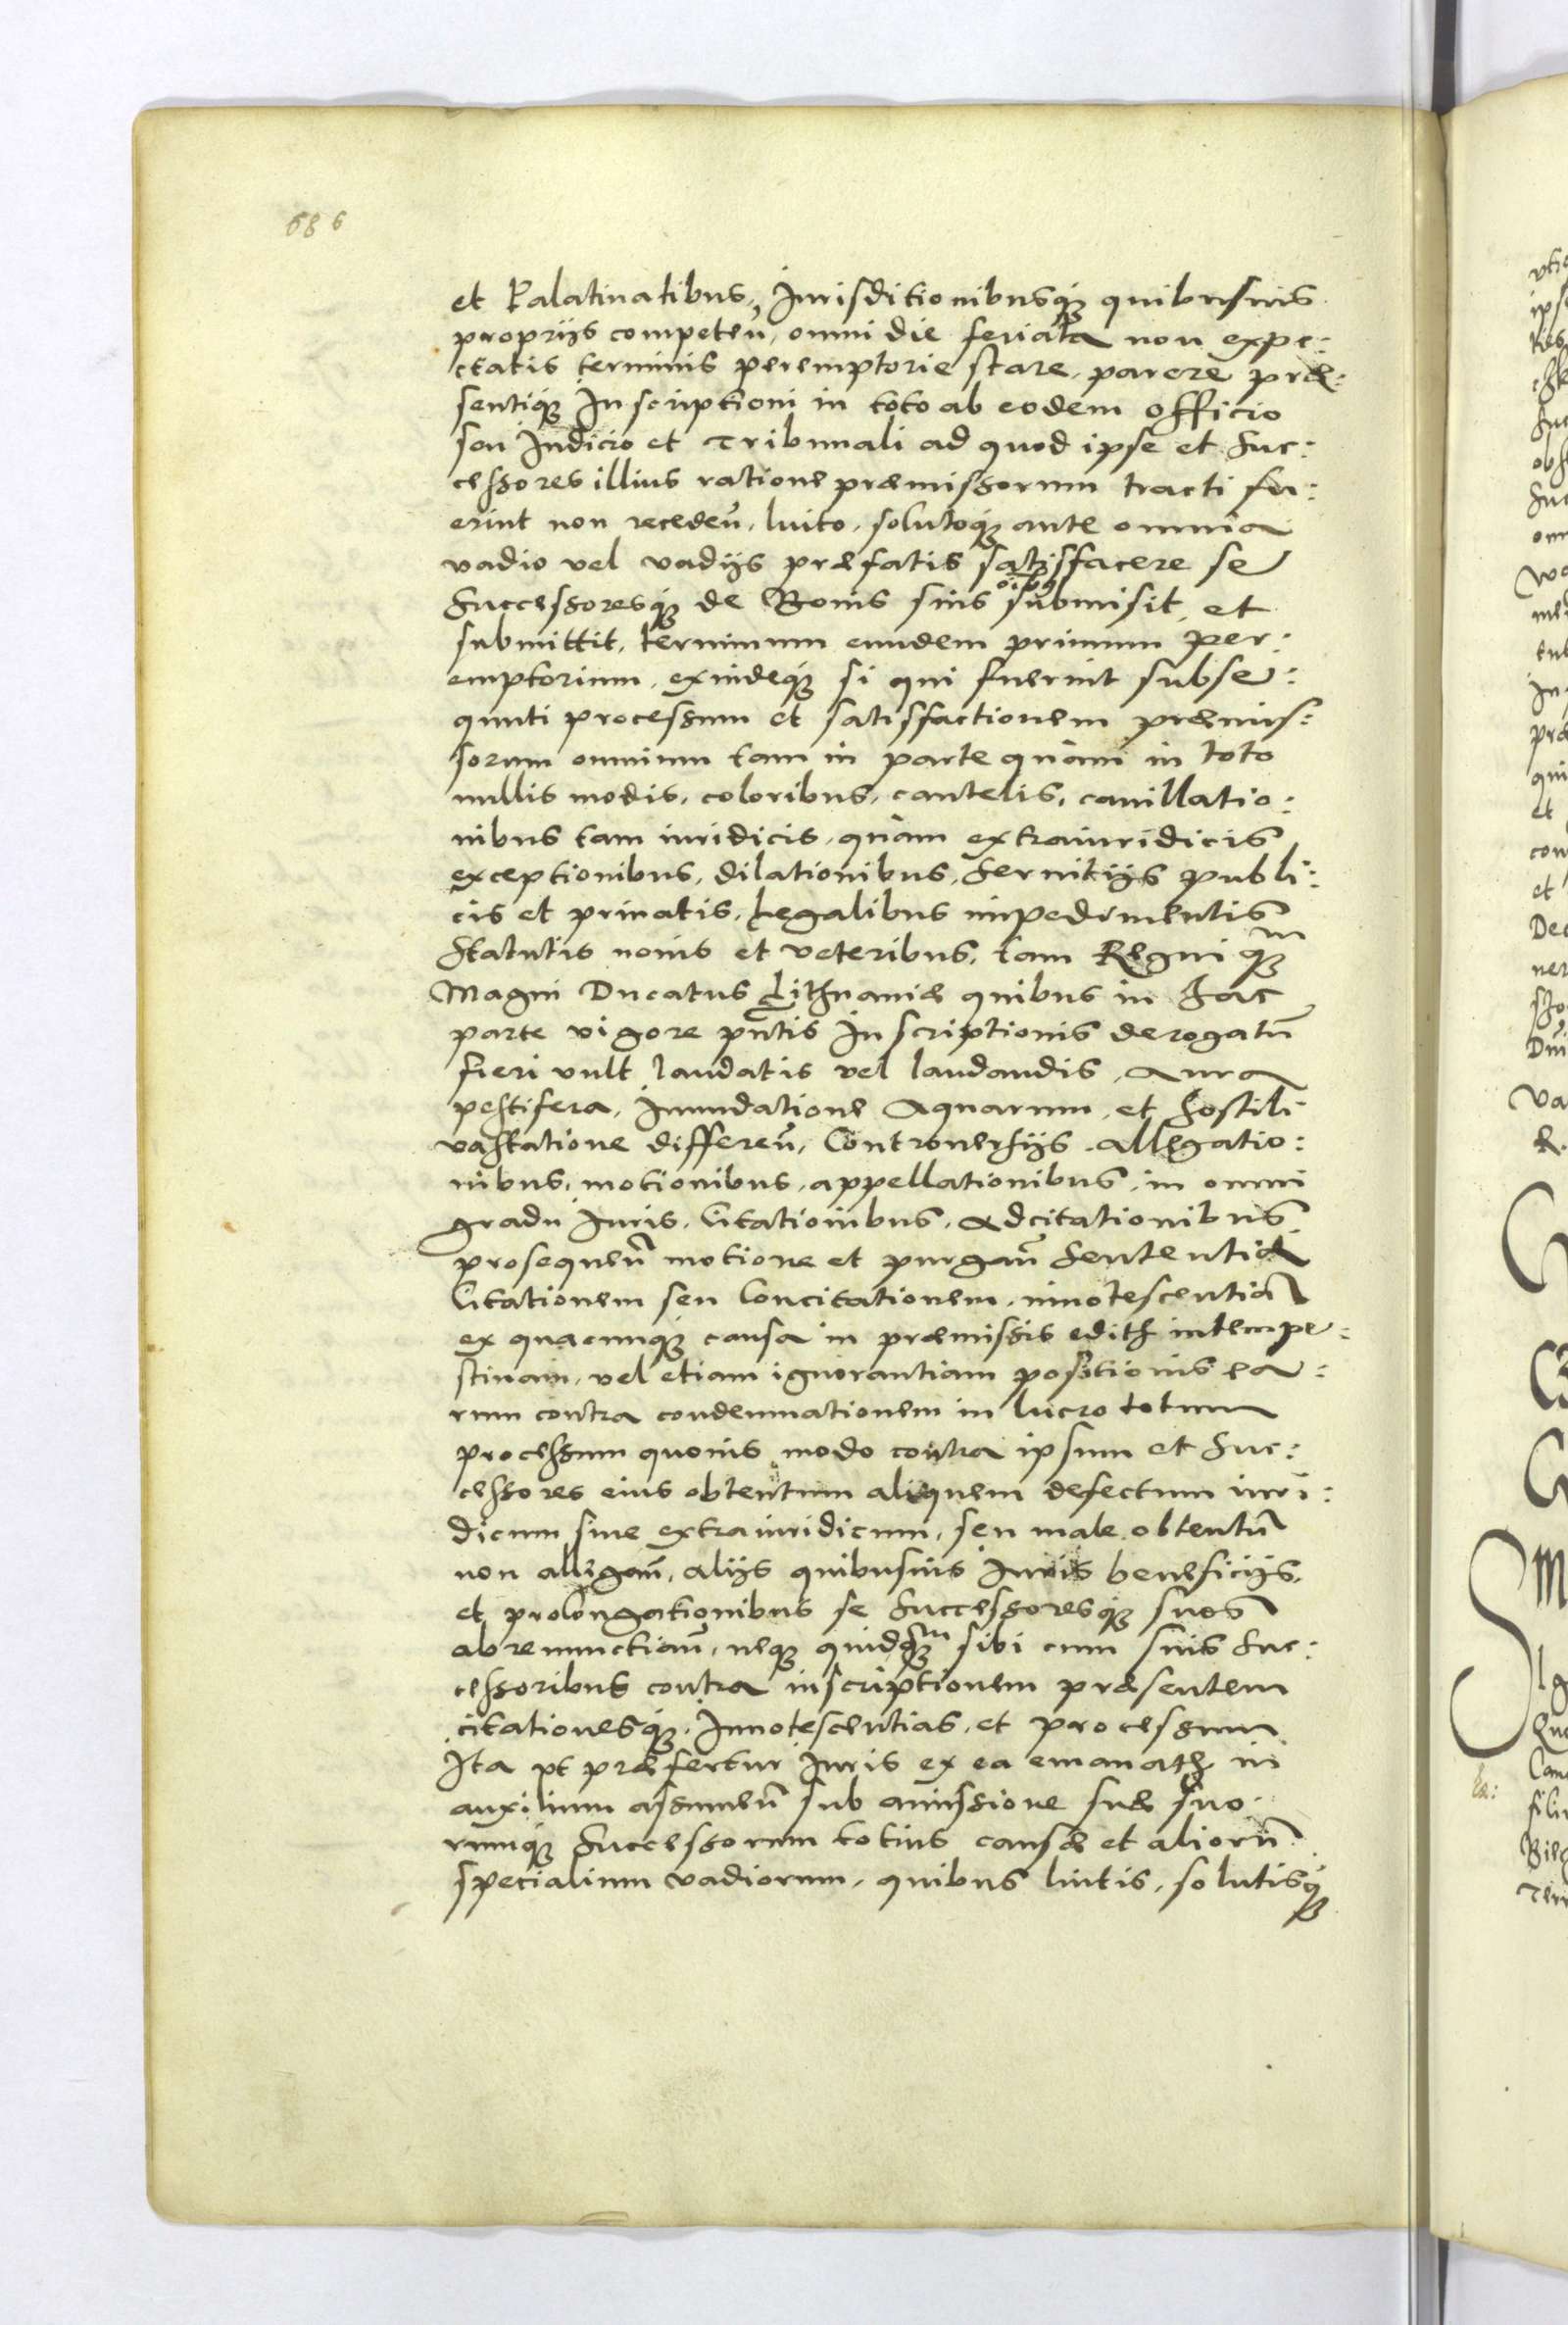 686
et Palatinatibus, Jurisditionibusq3 quibusuis
proprijs competeñ, omni die feriata non expe:
ctatis terminis peremptorie stare, parere præ:
sentiq3 Inscriptioni in toto ab eodem officio
seu Judicio et Tribunali ad quod ipse et Suc:
cessores illius ratione præmissorum tracti fu:
erint non recedeñ, luito, solutoq3 ante omnia
vadio vel vadijs præfatis satisfacere se
Successoresq3 de Bonis suis oibq submisit, et
submittit, terminum eundem primum Per:
emptorium, exindeq3 si qui fuerint subse:
quuti processum et satisfactionem præmis:
sorum omnium tam in parte quàm in toto
nullis modis, coloribus, cautelis, cauillatio:
nibus tam iuridicis, quàm extraiuridicis
exceptionibus, dilationibus, Seruitijs publi:
cis et priuatis, Legalibus impedimentis
Statutis nouis et veteribus, tam Regni q3m
Magni Ducatus Lithuaniæ quibus in hac
parte vigore pñtis Inscriptionis derogatū
fieri vult laudatis vel laudandis, Aura
pestifera, Inundatione Aquarum, et hostili
vastatione differeñ, Controuersijs, Allegatio:
nibus, motionibus, appellationibus, in omni
gradu Juris, Citationibus, Adcitationibus
prosequeñ motione et purgañ Sententia
Citationem seu Concitationem, innotescentiā
ex quacunq3 causa in præmissis edith intempe:
stiuam, vel etiam ignorantiam positionis ea:
rum contra condemnationem in lucro totum
processum quouis modo contra ipsum et Suc:
cessores eius obtentum aliquem defectum iuri:
dicum siue extraiuridicum, seu male obtentū
non allegañ, alijs quibusuis Juris beneficijs,
et prolongationibus se Successoresq3 suos
abrenunctiañ, neq3 quidq3m sibi cum suis Suc:
cessoribus contra inscriptionem præsentem
citationesq3, Innotescentias, et processum
Ita vt præfertur Juris ex ea emanath in
auxilium assumeñ sub amissione suæ suo:
rumq3 Successorum totius causæ et aliorū
specialium vadiorum, quibus luitis, solutisq3